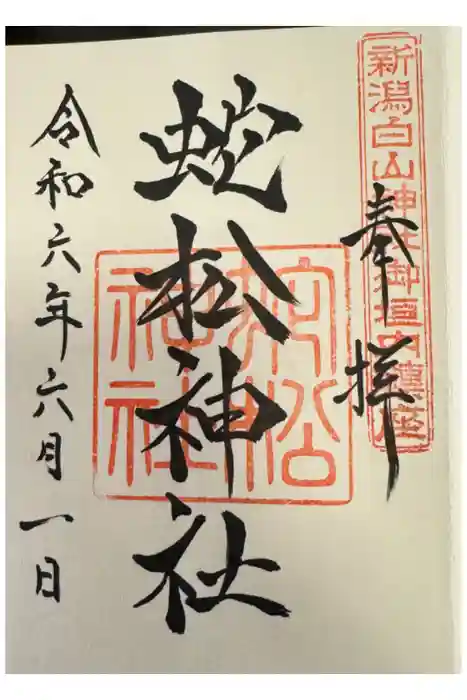 新潟白山神社御垣内鎮座
奉拝
蛇松神社
蛇松神社
令和六年六月一日